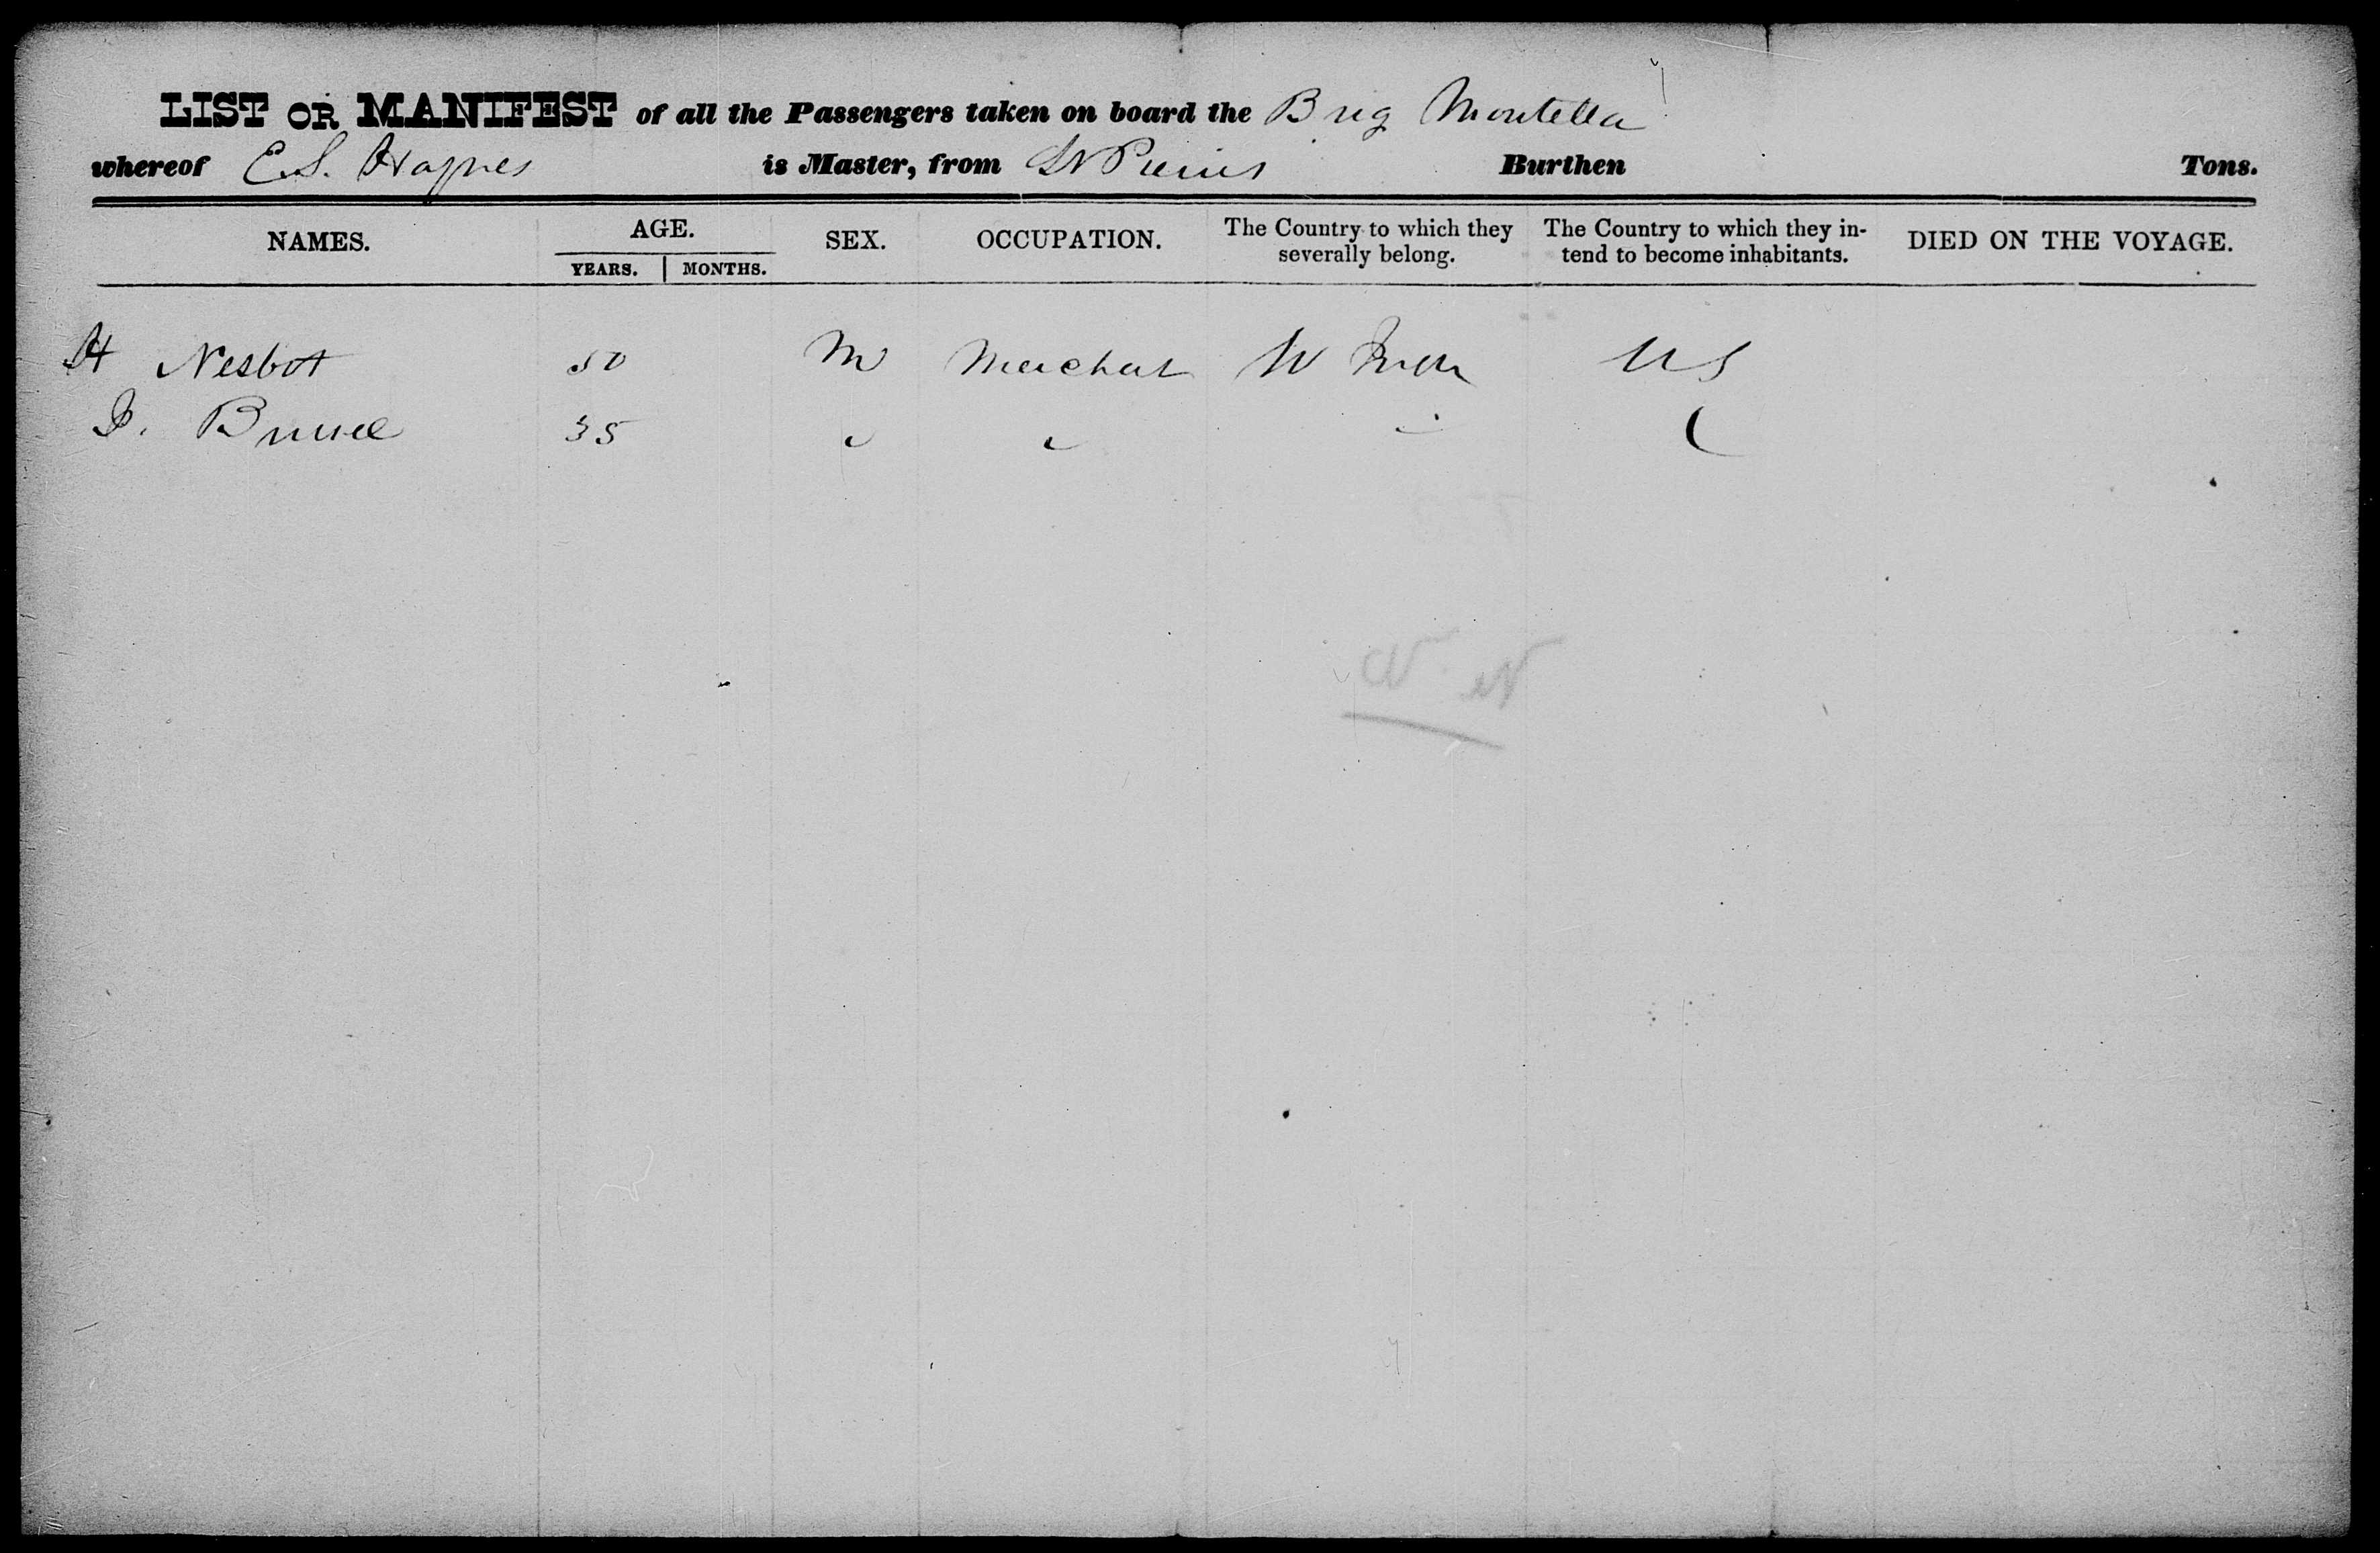 LIST OR MANIFEST of all the Passengers taken on board the Brig Montella
whereof E.S. Haynes is Master, from St Pierre Burthen Tons.
NAMES. AGE. SEX. OCCUPATION. The Country to which they severally belong. The Country to which they intend to become inhabitants. DIED ON THE VOYAGE.
YEARS. MONTHS.
H Nesbot 50 M Merchant W US
35